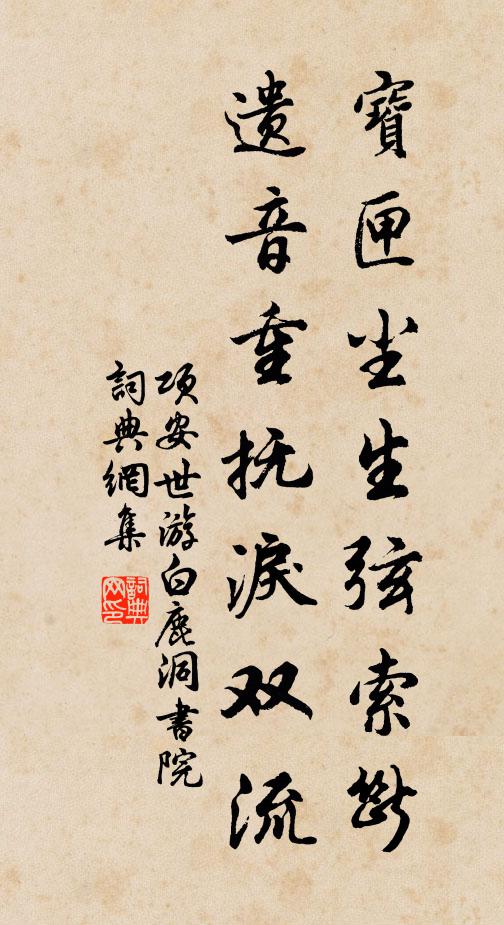 寶匣尘生弦索斷
遺音重抚淚双流
项安世游白鹿洞書院
詞典網集
詞典网印